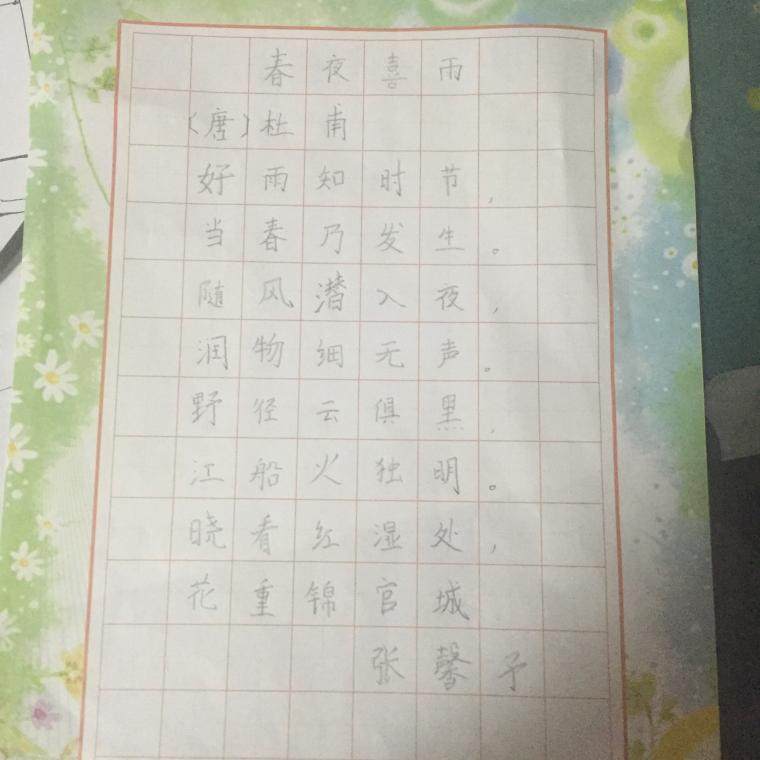 春夜喜雨
(唐)杜甫
好雨知时节,
当春乃发生。
随风潜入夜,
润物细无声。
野径云俱黑,
江船火独明。
晓看红湿处,
花重锦官城
张馨予